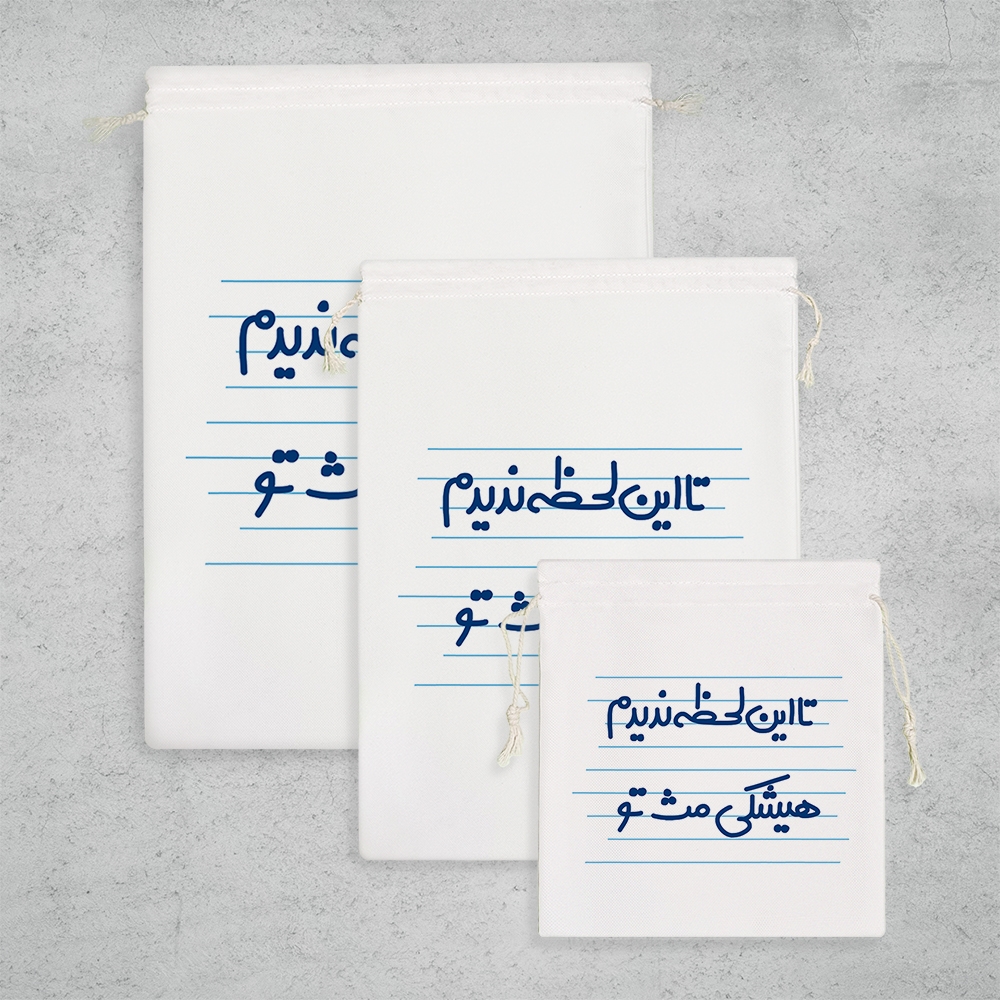 ندیدم
تو
تا این لحظه ندیدم
تو
تا این لحظه ندیدم
هیشکی مث تو